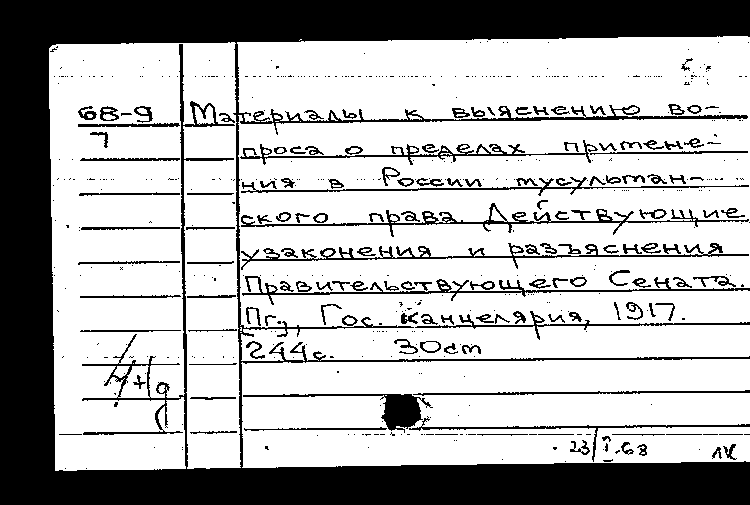 68-9 Материалы к выяснению во-
7 проса о пределах примене-
ния в России мусульман-
ского права. Действующие
узаконения и разъяснения
Правительствующего Сената.
[Пг.], Гос. канцелярия, 1917.
244с. 30см
23/I.68